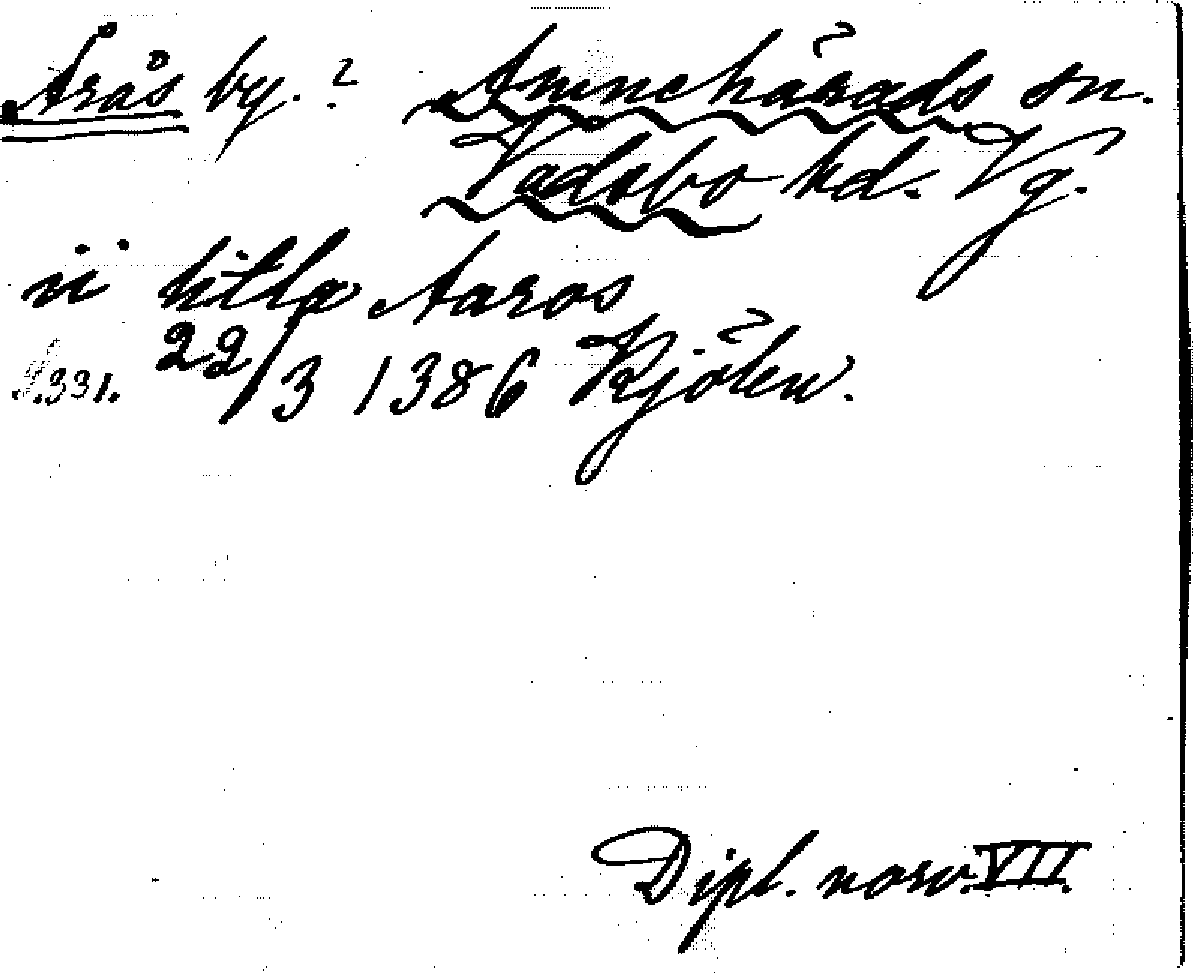 Årås by. ? Amnehärads sn.
Vadsbo hd. Vg.
ii litla Aaros
S. 331. 22/3 1386 Kjölen.
Dipl. norv. VII